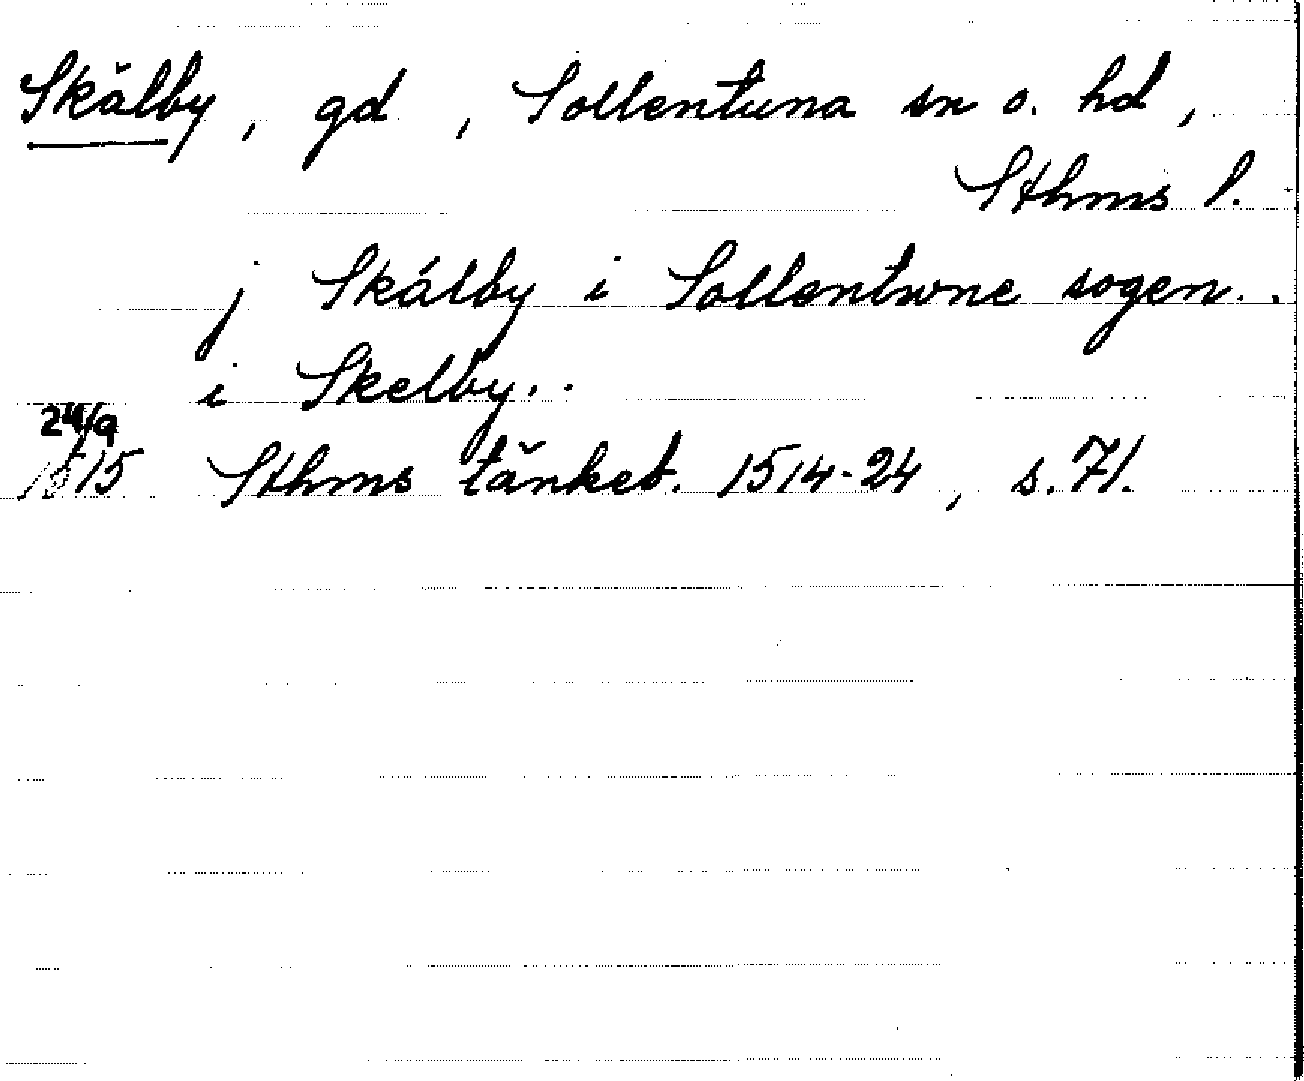 Skälby, gd, Sollentuna sn o. hd,
Sthms l.
j Skálby i Sollentwne sogen..
i Skelby..
24/9
1515 Sthms tänkeb. 1514-24, s. 71.